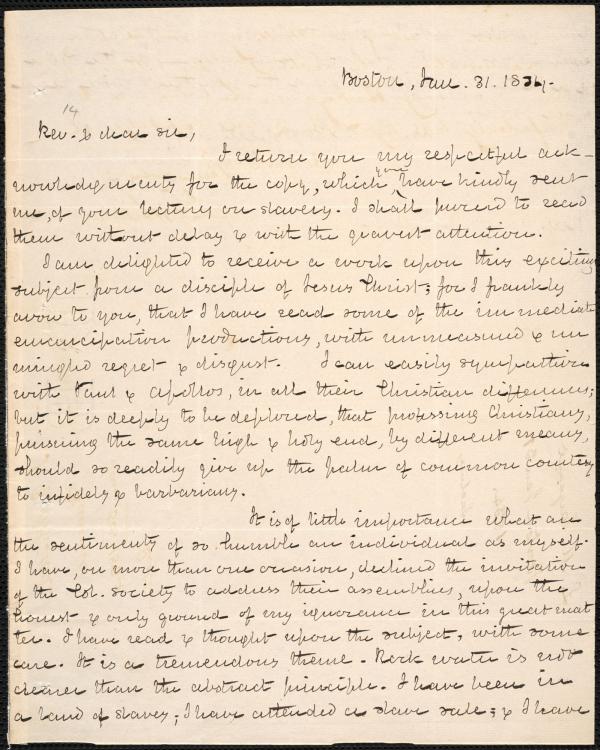 Boston, Jan. 31. 1834.
14
Rev. & dear sir,
I return you my respectful ack-
nowledgments for the copy, which you have kindly sent
me, of your lectures on slavery. I shall proceed to read
them without delay & with the gravest attention.
I am delighted to receive a work upon this exciting
subject from a disciple of Jesus Christ; for I frankly
avow to you, that I have read some of the immediate
emancipation productions, with unmeasured & un
mingled regret & disgust. I can easily sympathize
with Paul & Apollos, in all their Christian differences;
but it is deeply to be deplored, that professing Christians,
pursuing the same high & holy end, by different means,
should so readily give up the palm of common courtesy
to infidels & barbarians.
It is of little importance what are
the sentiments of so humble an individual as myself.
I have, on more than one occasion, declined the invitation
of the Col. society to address their assemblies, upon the
honest & only ground of my ignorance in this great mat
ter. I have read & thought upon the subject, with some
care. It is a tremendous theme. Rock water is not
clearer than the abstract principle. I have been in
a land of slaves; I have attended a slave sale; & I have